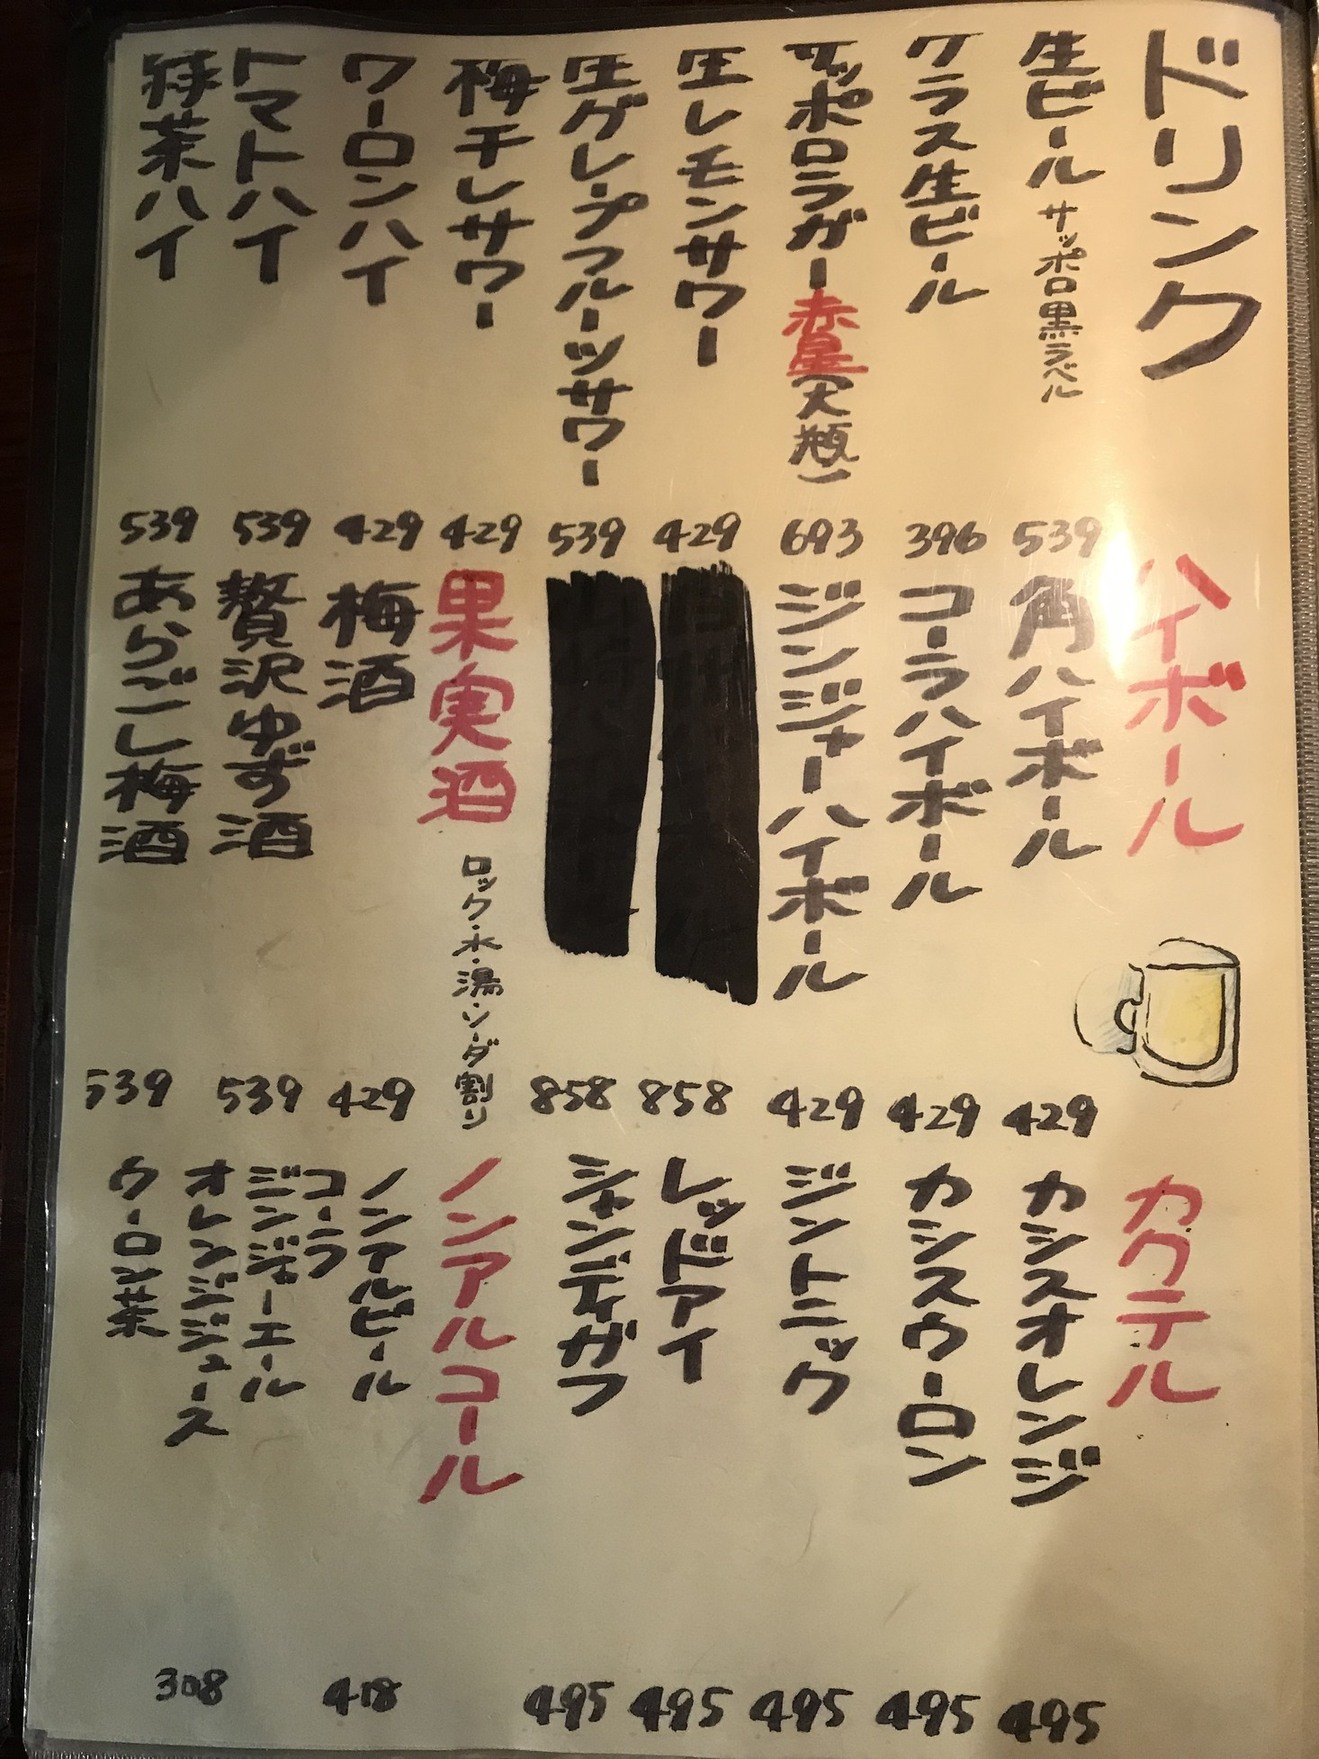 ドリンク
生ビール サッポロ黒ラベル 539
グラス生ビール 396
サッポロラガー赤星(大瓶) 693
生レモンサワー 429
生グレープフルーツサワー 539
梅干しサワー 429
ウーロンハイ 429
トマトハイ 539
緑茶ハイ 539
ハイボール
角ハイボール 429
コーラハイボール 429
ジンジャーハイボール 429
858
858
果実酒 ロック・水・湯・ソーダ割り
梅酒 429
贅沢ゆず酒 539
あらごし梅酒 539
カクテル
カシスオレンジ 495
カシスウーロン 495
ジントニック 495
レッドアイ 495
シャンディガフ 495
ノンアルコール
ノンアルビール 418
コーラ
ジンジャーエール
オレンジジュース
ウーロン茶
308